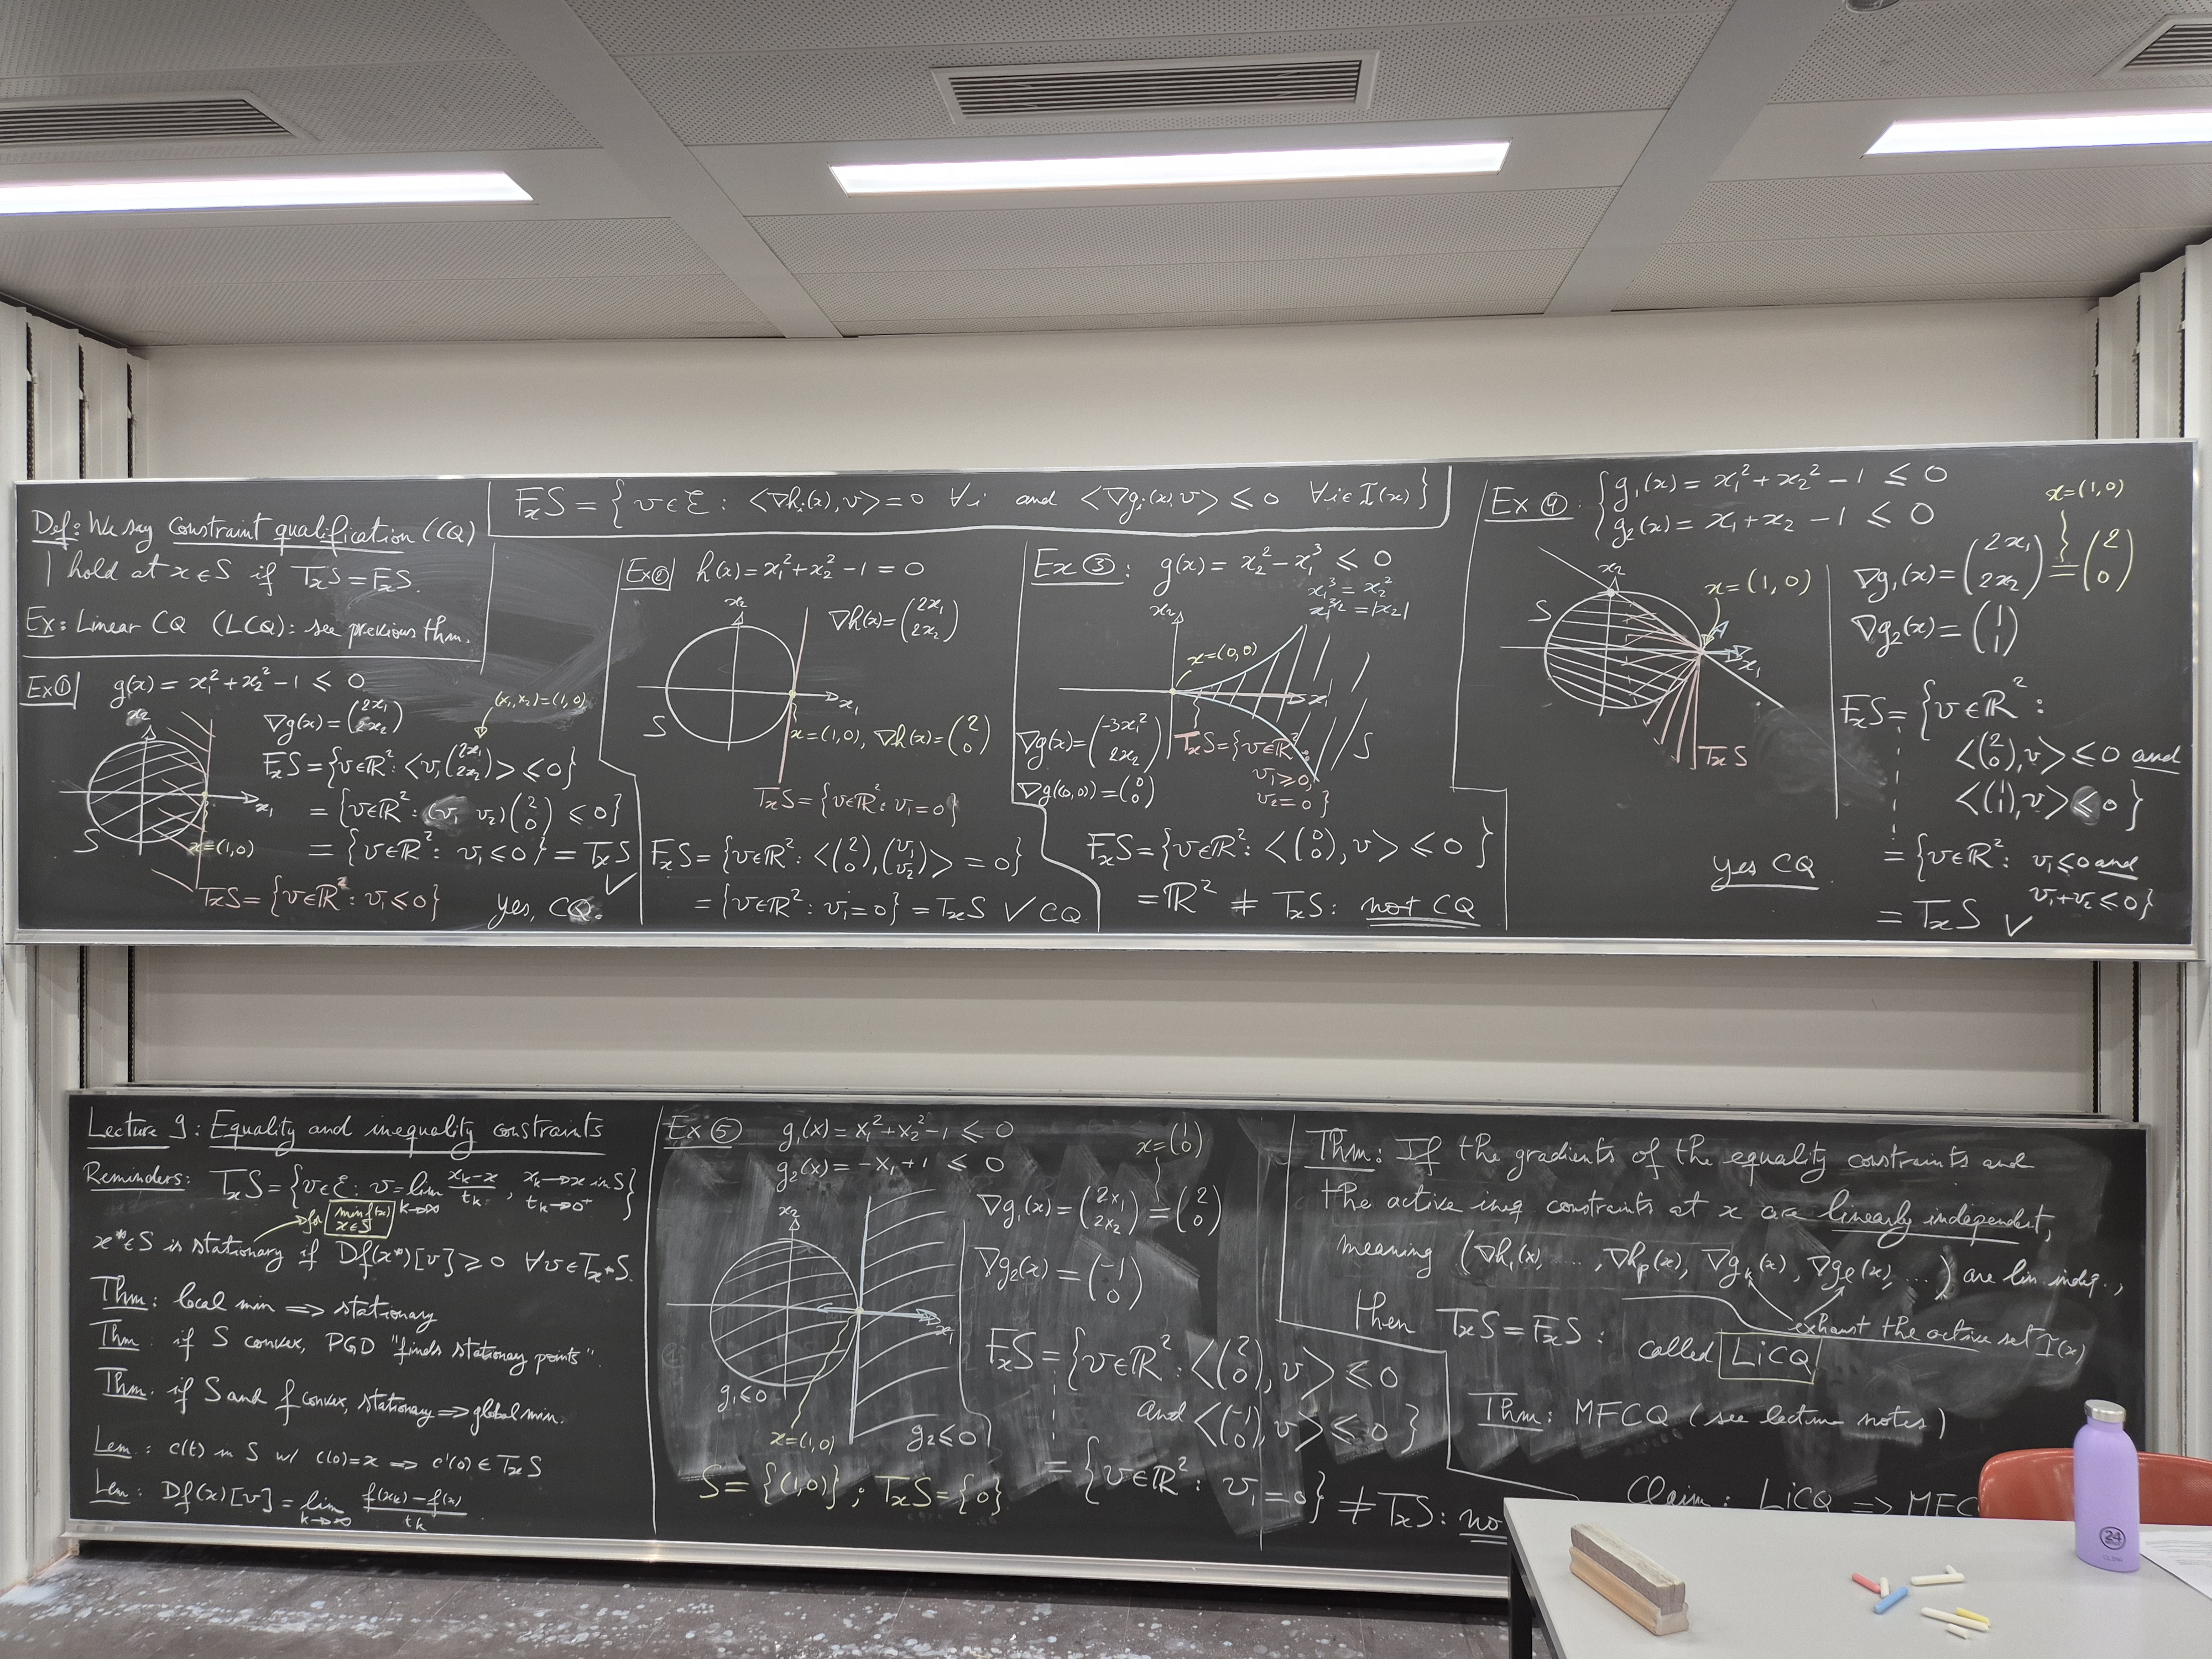 Def: We say constraint qualification (CQ)
hold at x ∈ S if TₓS = FₓS.
Ex: Linear CQ (LCQ): see previous thm.
FₓS = { v ∈ ℰ : <∇hᵢ(x), v> = 0 ∀i and <∇gᵢ(x), v> ≤ 0 ∀i ∈ I(x) }
Ex ①
g(x) = x₁² + x₂² - 1 ≤ 0
∇g(x) = (2x₁ 2x₂)
(x₁, x₂) = (1, 0)
x₂
FₓS = {v ∈ ℝ² : <v, (2x₁ 2x₂)> ≤ 0}
= {v ∈ ℝ² : (v₁ v₂) (2 0) ≤ 0}
x₁
= {v ∈ ℝ² : v₁ ≤ 0} = TₓS ✓
S
x = (1, 0)
TₓS = {v ∈ ℝ² : v₁ ≤ 0}
yes, CQ.
Ex ②
h(x) = x₁² + x₂² - 1 = 0
x₂
∇h(x) = (2x₁ 2x₂)
x₁
S
x = (1, 0), ∇h(x) = (2 0)
TₓS = {v ∈ ℝ² : v₁ = 0}
FₓS = {v ∈ ℝ² : <(2 0), (v₁ v₂)> = 0}
= {v ∈ ℝ² : v₁ = 0} = TₓS ✓ CQ
Ex ③ : g(x) = x₂² - x₁³ ≤ 0
x₁³ = x₂²
x₁^3/2 = |x₂|
x₂
x = (0, 0)
x₁
S
∇g(x) = (-3x₁² 2x₂)
∇g(0,0) = (0 0)
TₓS = {v ∈ ℝ² :
v₁ ≥ 0,
v₂ = 0 }
FₓS = {v ∈ ℝ² : <(0 0), v> ≤ 0 }
= ℝ² ≠ TₓS : not CQ
Ex ④ : { g₁(x) = x₁² + x₂² - 1 ≤ 0
g₂(x) = x₁ + x₂ - 1 ≤ 0
x = (1, 0)
x₂
x = (1, 0)
S
x₁
TₓS
∇g₁(x) = (2x₁ 2x₂) = (2 0)
∇g₂(x) = (1 1)
FₓS = {v ∈ ℝ² :
<(2 0), v> ≤ 0 and
<(1 1), v> ≤ 0}
= {v ∈ ℝ² : v₁ ≤ 0 and
v₁ + v₂ ≤ 0}
= TₓS ✓
yes CQ
Lecture 9 : Equality and inequality constraints
Reminders: TₓS = {v ∈ ℰ : v = lim k→∞ (xₖ - x)/tₖ , xₖ → x in S, tₖ → 0⁺}
for min f(x) x ∈ S
x* ∈ S is stationary if Df(x*)[v] ≥ 0 ∀v ∈ Tₓ*S.
Thm: local min ⟹ stationary
Thm: if S convex, PGD "finds stationary points".
Thm: if S and f convex, stationary ⟹ global min.
Lem: c(t) in S w/ c(0) = x ⟹ c'(0) ∈ TₓS
Lem: Df(x)[v] = lim k→∞ (f(xₖ) - f(x))/tₖ
Ex ⑤
g₁(x) = x₁² + x₂² - 1 ≤ 0
g₂(x) = -x₁ + 1 ≤ 0
x = (1 0)
x₂
∇g₁(x) = (2x₁ 2x₂) = (2 0)
∇g₂(x) = (-1 0)
x₁
g₁ ≤ 0
g₂ ≤ 0
x = (1, 0)
S = {(1,0)} ; TₓS = {0}
FₓS = {v ∈ ℝ² : <(2 0), v> ≤ 0
and <(-1 0), v> ≤ 0 }
= {v ∈ ℝ² : v₁ = 0} ≠ TₓS : no
Thm: If the gradients of the equality constraints and
the active ineq constraints at x are linearly independent,
meaning (∇h₁(x), ..., ∇hₚ(x), ∇gₖ(x), ∇gℓ(x), ...) are lin indep.,
exhaust the active set I(x)
then TₓS = FₓS : called LICQ
Thm: MFCQ (see lecture notes)
Claim: LICQ ⟹ MFC
24